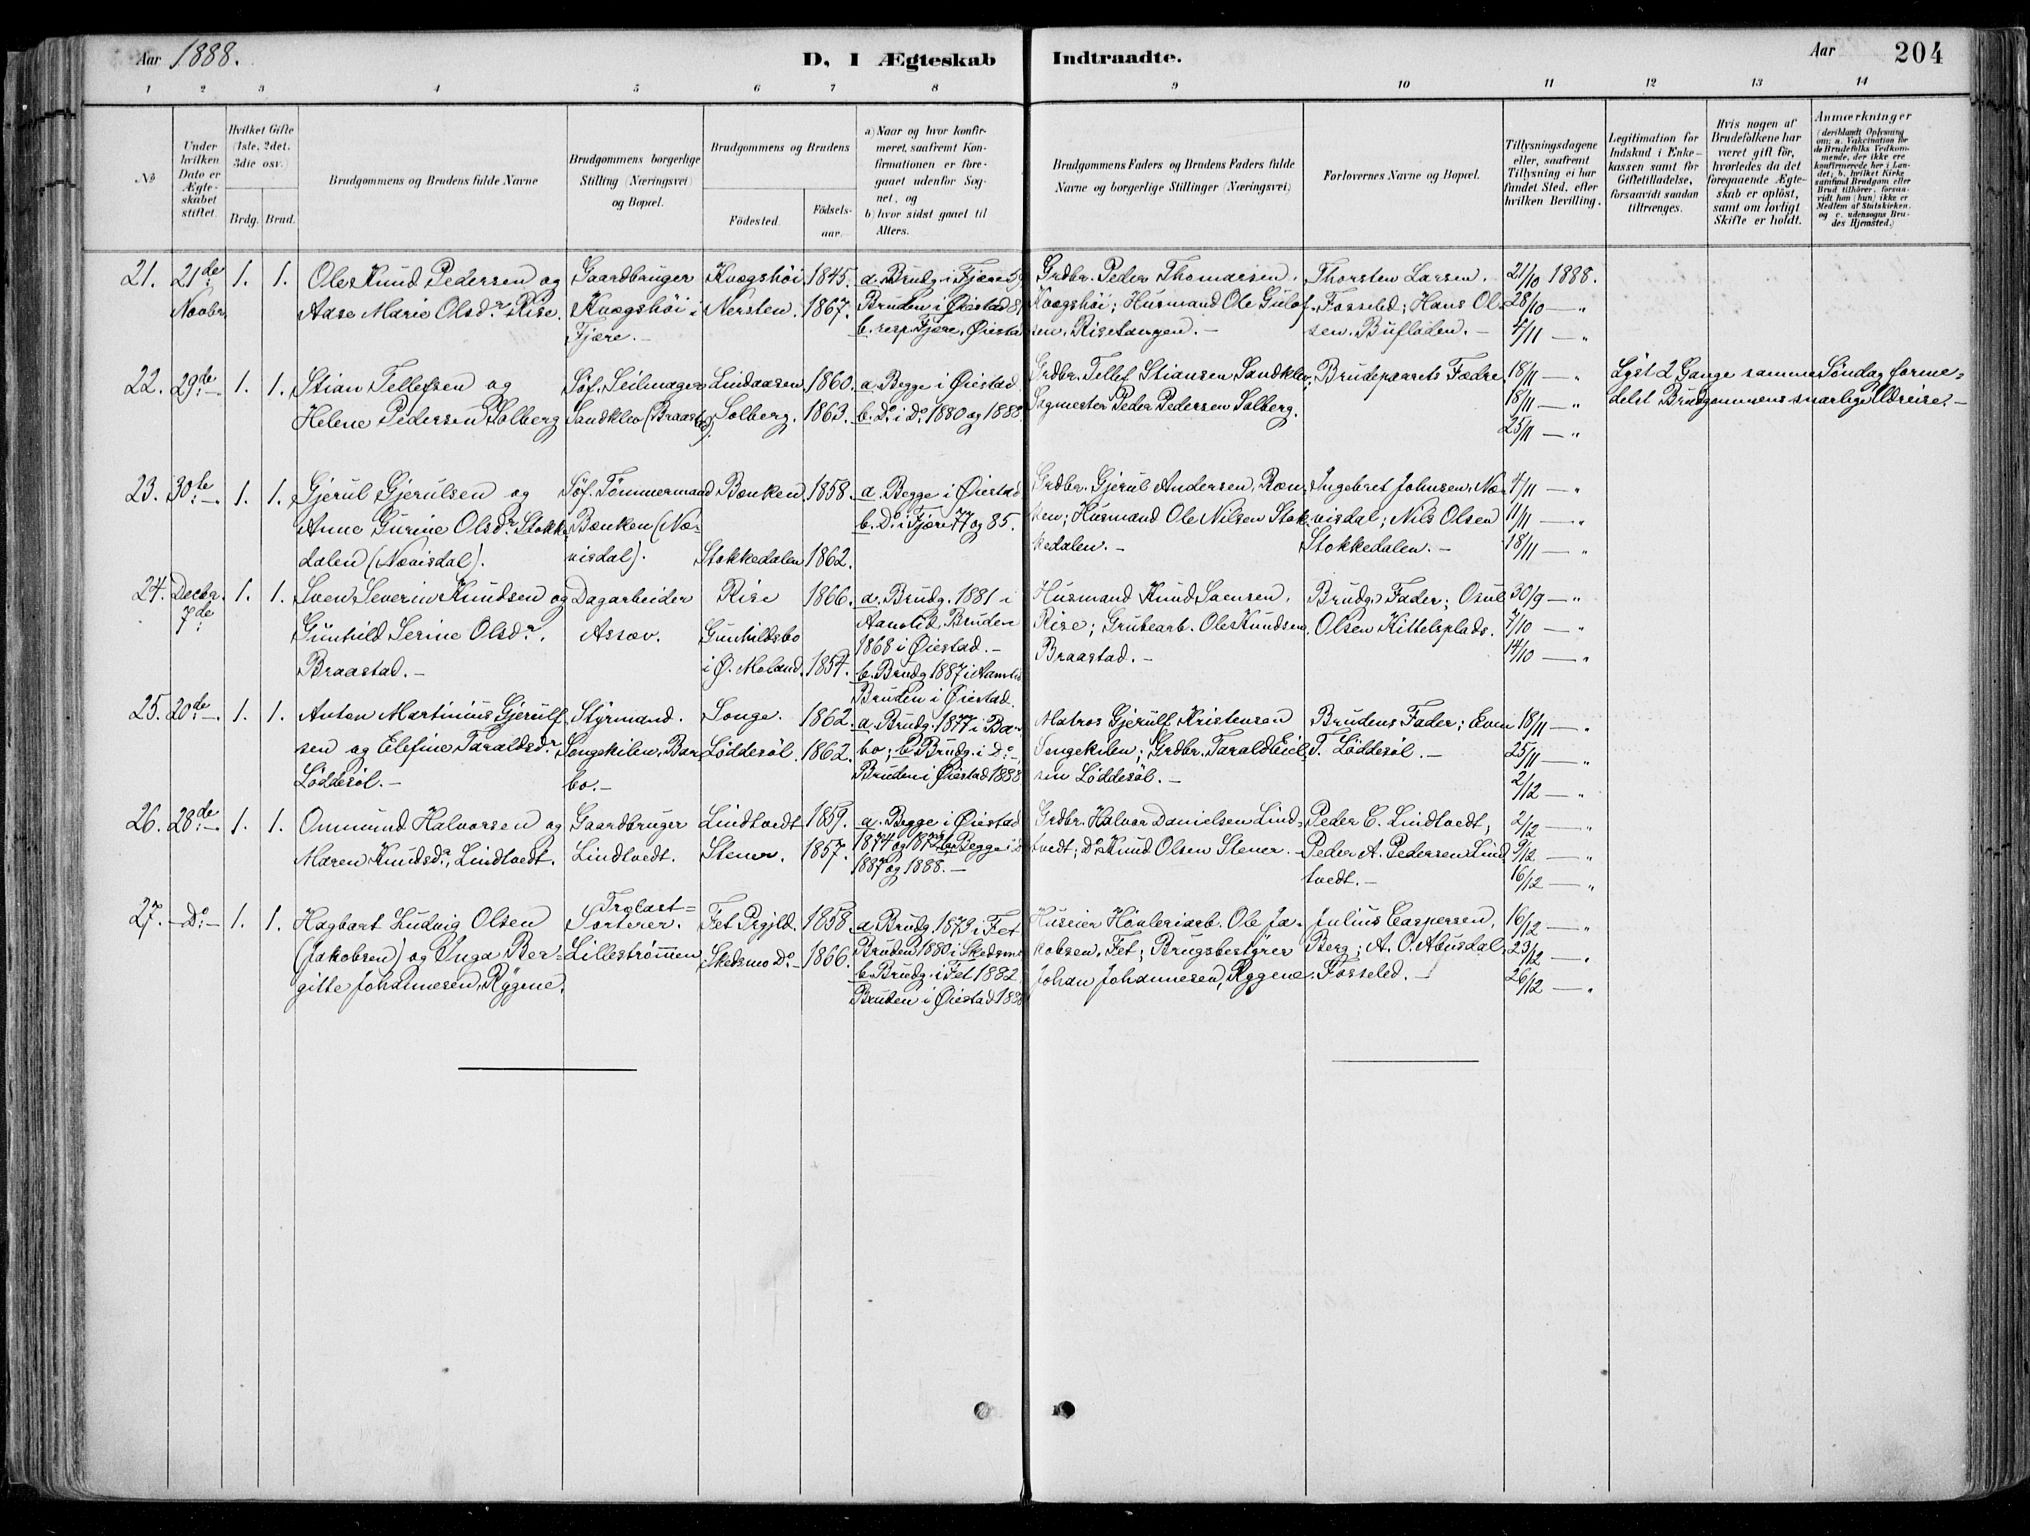 Aar 1888.
D, I Ægteskab Indtraadte.
Aar 204
1 2 3 4 5 6 7 8 9 10 11 12 13 14
No
Under hvilken Dato er Ægteskabet stiftet.
Hvilket Gifte (1ste, 2det, 3die osv.)
Brdg. Brud.
Brudgommens og Brudens fulde Navne
Brudgommens borgerlige Stilling (Næringsvei) og Bopæl.
Brudgommens og Brudens
Födested.
Födsels-aar.
a) Naar og hvor konfirmeret, saafremt Konfirmationen er foregaaet udenfor Sognet, og
b) hvor sidst gaaet til Alters.
Brudgommens Faders og Brudens Faders fulde Navne og borgerlige Stillinger (Næringsvei)
Forlovernes Navne og Bopæl.
Tillysningsdagene eller, saafremt Tillysning ei har fundet Sted, efter hvilken Bevilling.
Legitimation for Indskud i Enkekassen samt for Giftetilladelse, forsaavidt saadan tiltrænges.
Hvis nogen af Brudefolkene har været gift för, hvorledes da det foregaaende Ægteskab er oplöst, samt om lovligt Skifte er holdt.
Anmærkninger (deriblandt Oplysning om: a. Vakcination for de Brudefolks Vedkommende, der ikke ere konfirmerede her i Landet; b. hvilket Kirkesamfund Brudgom eller Brud tilhörer, forsaavidt han (hun) ikke er Medlem af Statskirken, og c. udensogns Brudes Hjemsted.)
21. 21de Novbr. 1. 1. Ole Knud Pedersen og
Aase Marie Olsdr. Rise.
Gaardbruger
Kvogshöi i
Fjære.
Kvogshöi 1845.
Nersten. 1867.
a. Brudg. i Fjære 59
Bruden i Øiestad 81
b. resp. Fjære, Øiestad
Grdbr. Peder Thomassen.
Kvogshöi; Husmand Ole Gulof-
sen, Risetangen.
Thorsten Larsen.
Fosseled; Hans Ol-
sen. Bufloden.
21/10 1888.
28/10 — "
4/11 — "
22. 29de 1. 1. Stian Tellefsen og
Helene Pedersen Solberg
Söf. Seilmager
Sandklev (Braastad)
Lindaasen 1860.
Solberg. 1863.
a. Begge i Øiestad
b. Do. i Do. 1880 og 1888
Grdbr. Tellef Stiansen Sandklev.
Sagmester Peder Pedersen Solberg.
Brudeparrets Fædre.
18/11 — "
18/11 — "
25/11 — "
Lyst 2 Gange samme Söndag forme-
delst Brudgommens snarlige Udreise.
23. 30te 1. 1. Gjerul Gjerulsen og
Anne Gurine Olsdr. Stokke-
dalen (Nævisdal).
Söf. Tömmermand
Bænken (Næ-
visdal).
Bænken 1858.
Stokkedalen 1862.
a. Begge i Øiestad
b. Do. i Fjære 77 og 85.
Grdbr. Gjerul Andersen, Bæn-
ken; Husmand Ole Nilsen Stok-
kedalen.
Ingebret Johnsen, Næ-
visdal; Nils Olsen
Stokkedalen.
4/11 — "
11/11 — "
18/11 — "
24. Decbr. 7de 1. 1. Sven Severin Knudsen og
Gunhild Serine Olsdr.
Braastad.
Dagarbeider
Assev.
Rise 1866.
Gunhildsbo
i Ø. Moland. 1854.
a. Brudg. 1881 i
Aamolid, Bruden
1868 i Øiestad.
b. Brudg. 1887 i Aamli
Bruden i Øiestad.
Husmand Knud Svensen.
Rise; Grubearb. Ole Knudsen,
Braastad.
Brudg. Fader; Osul
Olsen Kittelsplads.
30/9 — "
7/10 — "
14/10 — "
25. 20de 1. 1. Anton Martinius Gjerulf-
sen og Elefine Taraldsdr.
Löddesöl.
Styrmand.
Songekilen, Bar-
bo.
Songe. 1862.
Löddesöl. 1862.
a. Brudg. 1877 i Bar-
bo; b. Brudg. i Do.
Bruden i Øiestad 1888
Matros Gjerulf Kristensen
Songekilen; Grdbr. Tarald Eiel-
sen Löddesöl.
Brudens Fader; Even
T. Löddesöl.
18/11 — "
25/11 — "
2/12 — "
26. 28de 1. 1. Ommund Halvorsen og
Maren Knudsdr. Lindtvedt.
Gaardbruger
Lindtvedt.
Lindtvedt 1859.
Stener. 1857.
a. Begge i Øiestad
1874 og 1872; b. Begge i Do.
1887 og 1888.
Grdbr. Halvor Danielsen Lind-
tvedt; Do. Knud Olsen Stener.
Peder C. Lindtvedt;
Peder A. Pedersen Lind-
tvedt.
2/12 — "
9/12 — "
16/12 — "
27. Do. 1. 1. Hagbart Ludvig Olsen
(Jakobsen) og Inga Ber-
gitte Johannesen, Rygene.
Trælast-
Sorterer.
Lilleströmmen
Fet Prgjld. 1858.
Skedsmo Do. 1866.
a. Brudg. 1873 i Fet
Bruden 1880 i Skedsmo
b. Brudg. i Fet 1882
Bruden i Øiestad 1888
Huseier Hövleriarb. Ole Ja-
kobsen, Fet; Brugsbestyrer
Johan Johannesen, Rygene.
Julius Caspersen,
Berg; A. O. Abusdal,
Fosseled.
16/12 — "
23/12 — "
26/12 — "